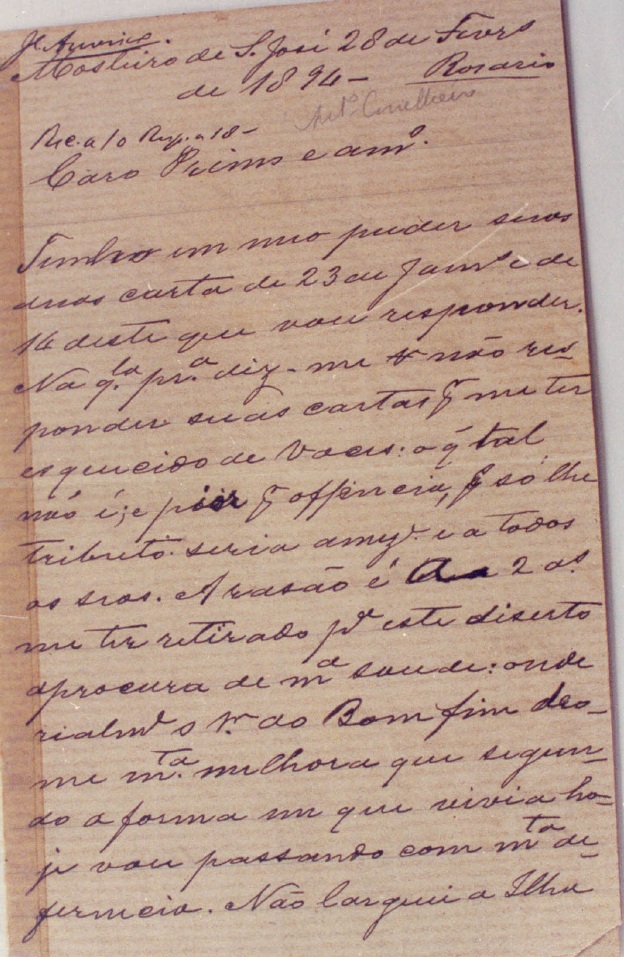 Mosteiro de S. José 28 de Fevro
de 1894 – Rosario
Rec. a 10 Resp. a 18 –
Caro Primo e amº.
Tenho em meo puder suas
duas carta de 23 de Janrº e de
14 deste que vou responder.
Na q.la pr.a diz-me não res-
ponder suas cartas q̃ me ter
esquecido de Voces: o q̃ tal
não é; e pior q̃ offencia, q̃ só lhe
tributo. seria amzº. e a todos
os seos. A rasão é a 2 as.
me ter retirado pª este diserto
aprocura de mª saude: onde
rialmte o Sr. do Bom fim deo-
me mta. melhora que segun-
do a forma em que vivia ho-
je vou passando com mta de-
fernecia. Não larguei a Ilha